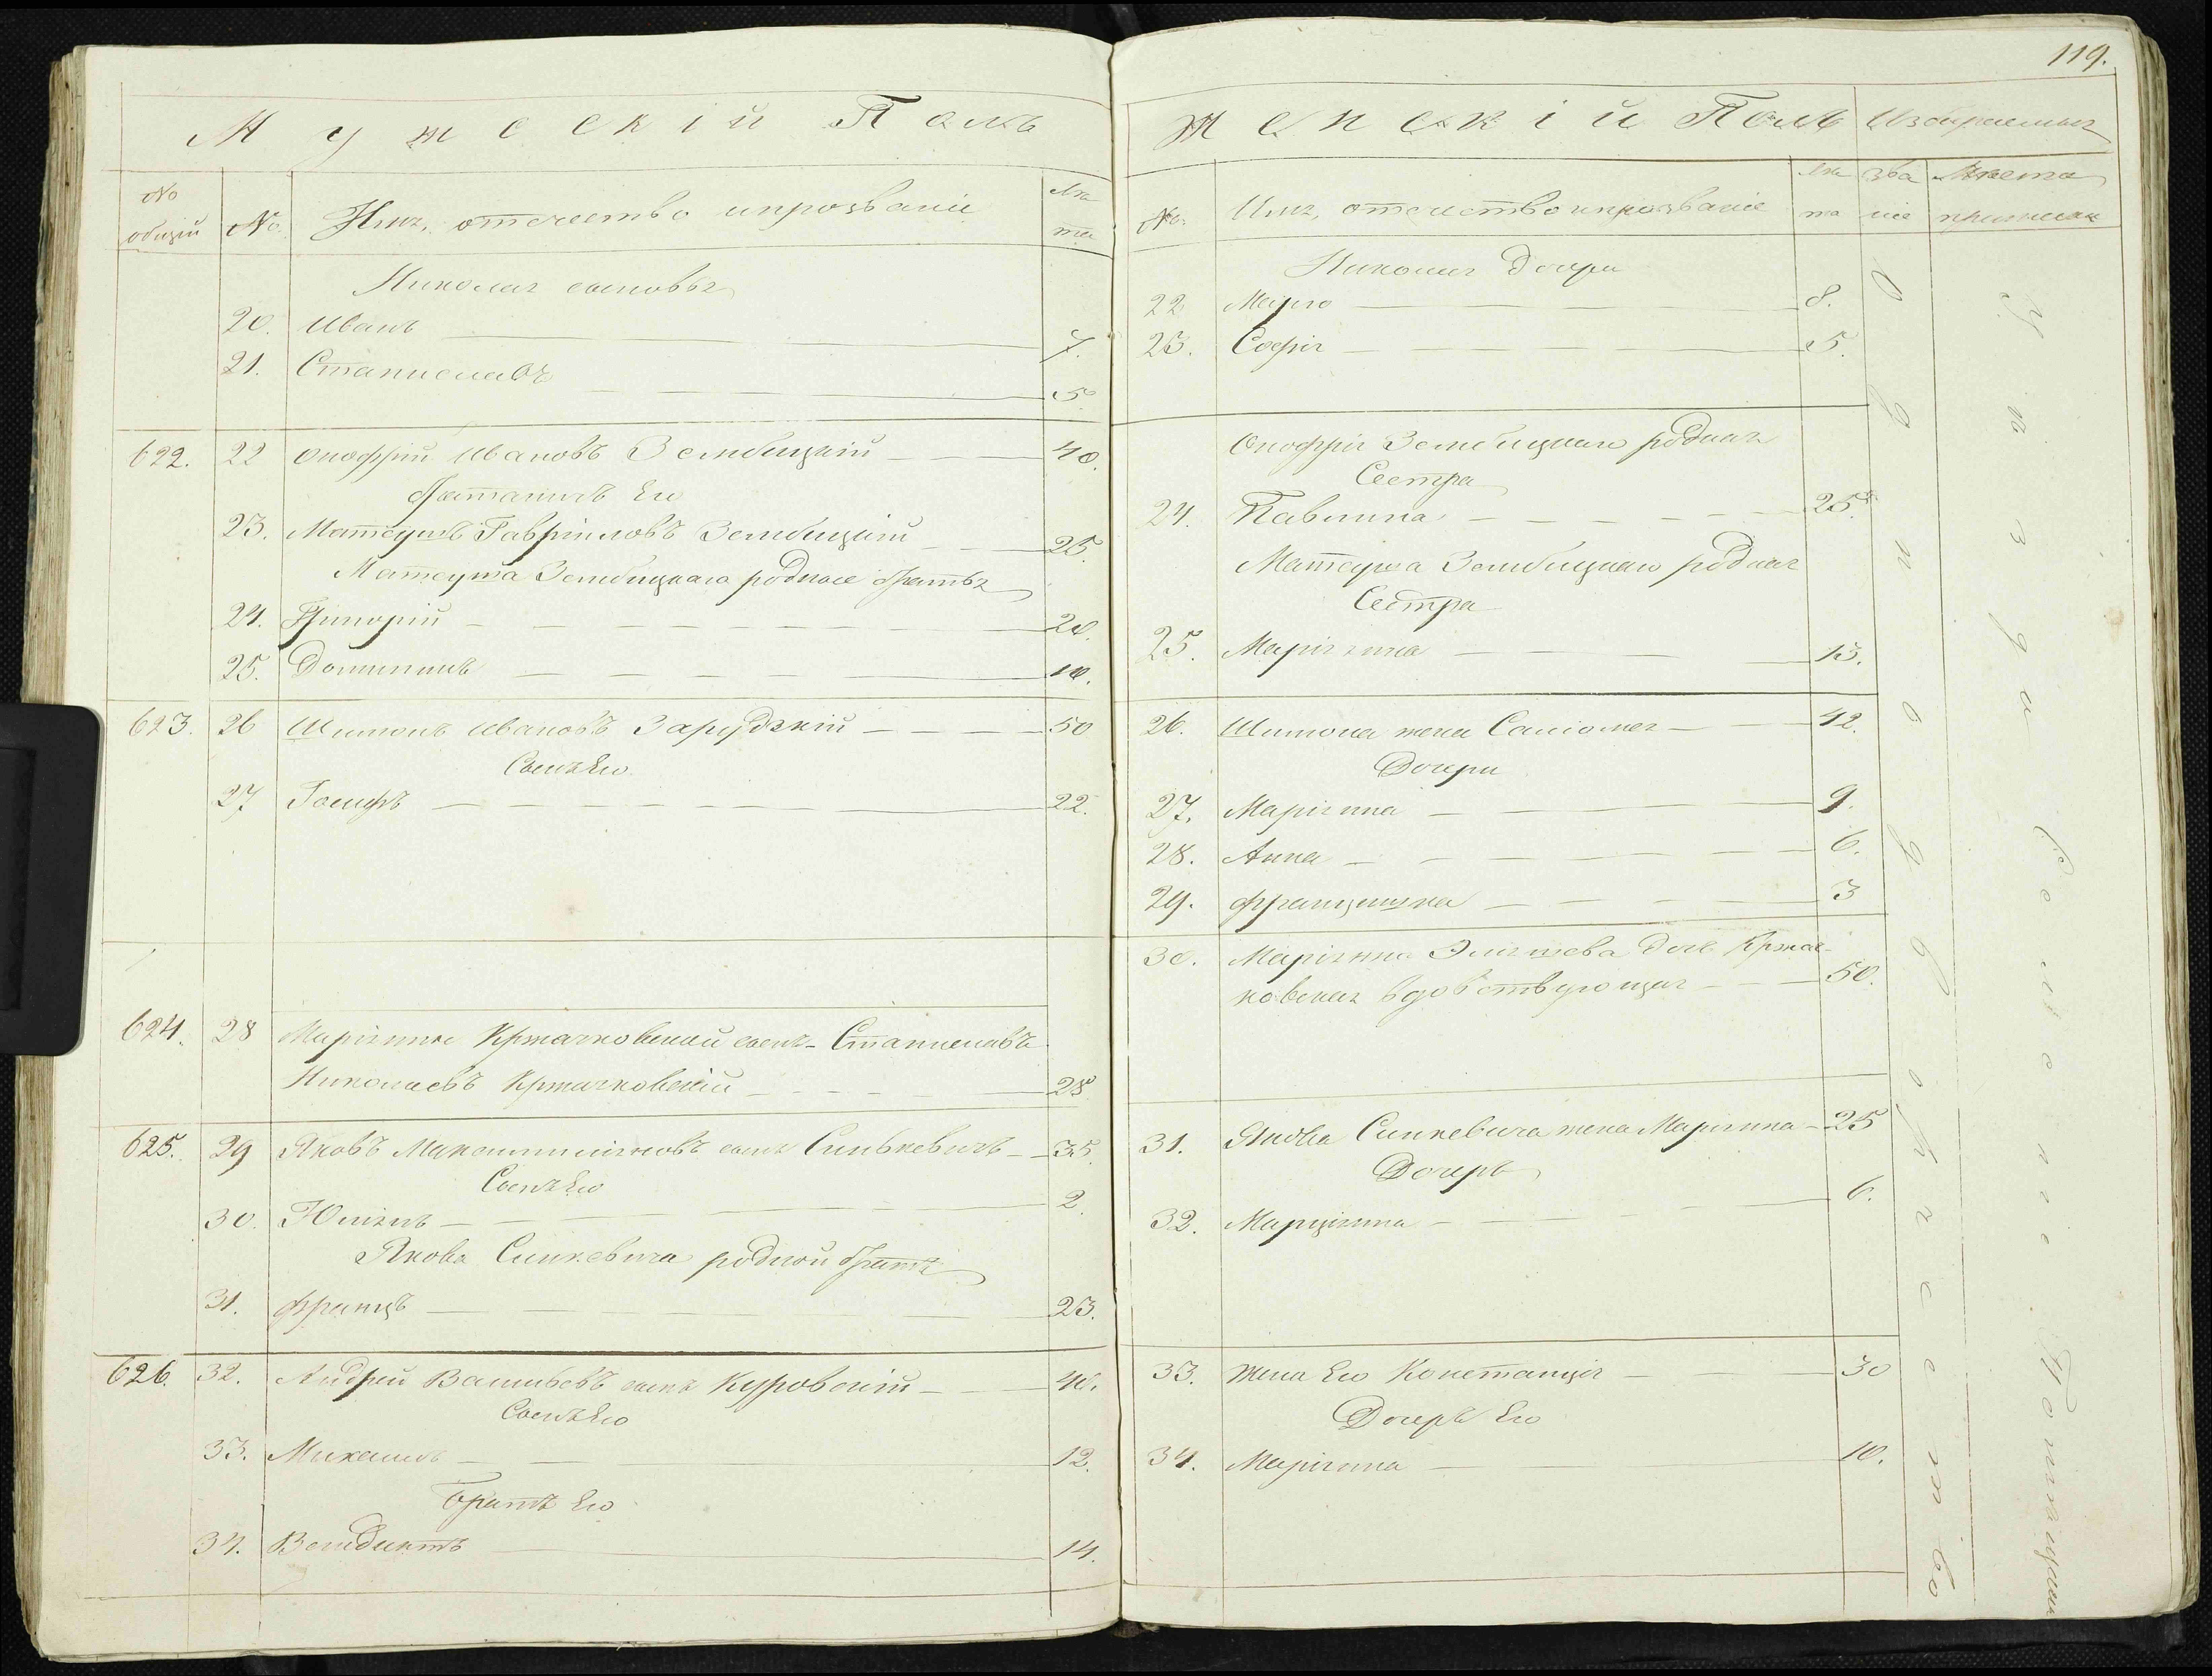 Мужескій Полъ
No общій
No
Имя, отечество и прозваніе
Лѣта
Николая сыновья
20. Иванъ 7.
21. Станиславъ 5
622. 22 Онофрій Ивановъ Зембицкій 40.
23. Матеушъ Гавріиловъ Зембицкій 25
Матеуша Зембицкаго родные братья
24. Григорій 20.
25. Доминикъ 10.
623. 26 Шимонъ Ивановъ Зарудзкій 50
Сынъ Его
27 Іосифъ 22.
624. 28 Маріянны Кржачковской сынъ Станиславъ
Николаевъ Кржачковскій 28
625. 29 Яковъ Максимиліяновъ сынъ Синькевичъ 35.
Сынъ Его
30. Юліянъ 2.
Якова Синкевича родной братъ
31. Францъ 23.
626. 32. Андрей Васильевъ сынъ Куровскій 40.
Сынъ Его
33. Михаилъ 12.
Братъ Его
34. Венедиктъ 14.
119.
Женскій Полъ
Избираемыя
No.
Имя, отечество и прозваніе
Лѣта
званіе
Мѣста
Николая дочери
22 8.
23. Софія 5.
Онофрія Зембицкаго родная
Сестра
24. Павлина 25.
Матеуша Зембицкаго родная
Сестра
25. Маріянна 13.
26. Шимона жена Саломея 42.
Дочери
27. Маріянна 9.
28. Анна 6.
29. Францишка 3
30. Маріянна дочь Кржач-
ковская вдовствующая 50.
31. Якова Синкевича жена Маріянна 25
Дочерь
32. Марціянна 6.
33. Жена Его Констанція 30
Дочерь Его
34. Маріянна 10.
Однодворчество
уѣзда Селеніе